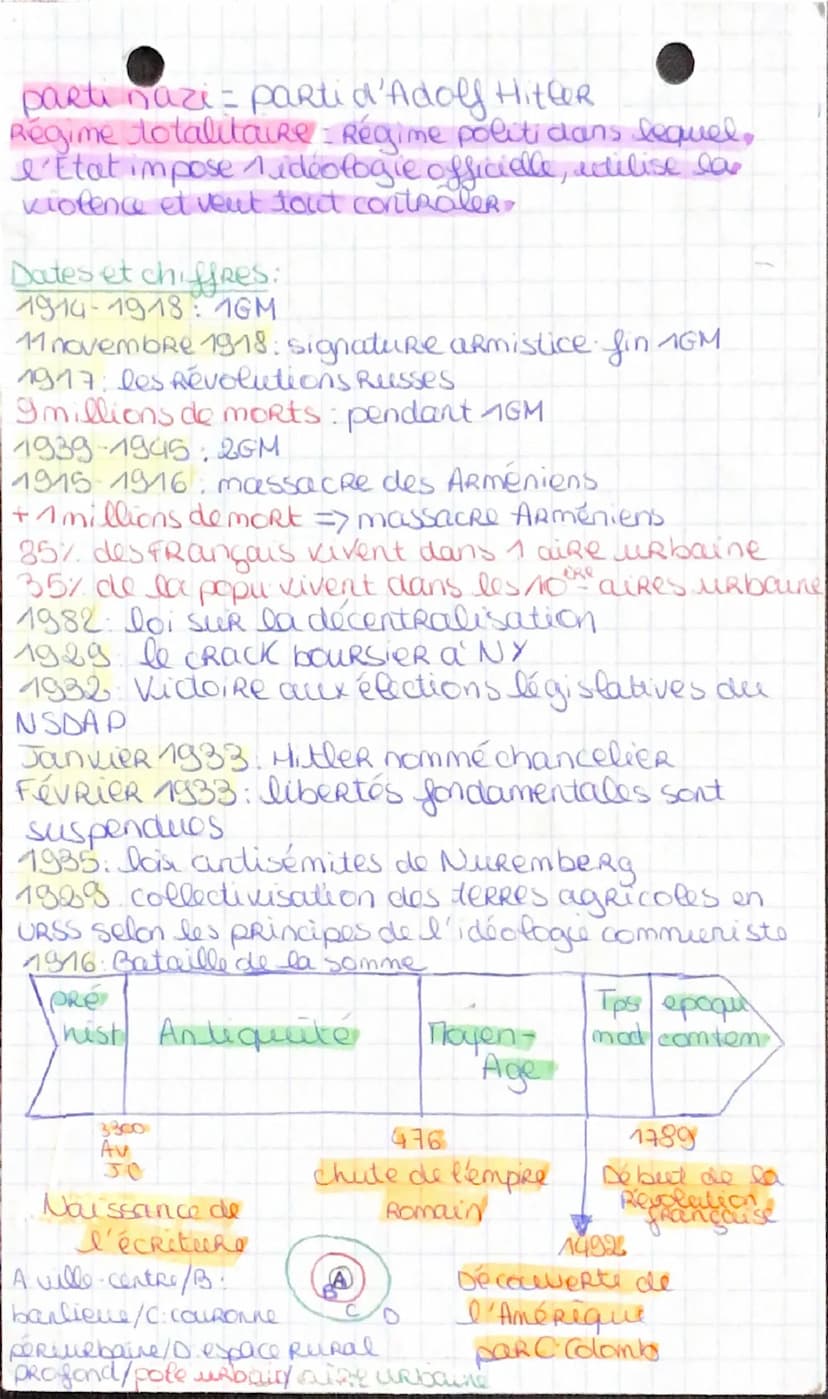 parti nazi = parti d'Adolf Hitler
Régime totalitaire : Régime politi dans lequel
l'État impose 1 idéologie officielle, utilise la
violence et veut tout contrôler.
Dates et chiffres :
1914-1918 : 1GM
11 novembre 1918 : signature armistice fin 1GM
1917 : les Révolutions Russes
9 millions de morts : pendant 1GM
1939-1945 : 2GM
1915-1916 : massacre des Arméniens
+ 1 millions de mort => massacre Arméniens
85% des français vivent dans 1 aire urbaine
35% de la popu vivent dans les 10ère aires urbaine
1982 : loi sur la décentralisation
1929 le crack boursier à NY
1932 : Victoire aux élections législatives du
NSDAP
Janvier 1933 : Hitler nommé chancelier
Février 1933 : libertés fondamentales sont
suspendues
1935 : lois antisémites de Nuremberg
collectivisation des terres agricoles en
URSS selon les principes de l'idéologie communiste
1916 : Bataille de la somme
pré
hist
Antiquité
Moyen-
Age
Tps
mod
epoqu
comtem
3300
Av
JC
Naissance de
l'écriture
476
chute de l'empire
Romain
1789
Début de la
Révolution
française
1492
Découverte de
l'Amérique
par C. Colomb
A B C D
A ville-centre/B :
banlieue/C : couronne
périurbaine/D espace rural
profond/pole urbain/aire urbaine